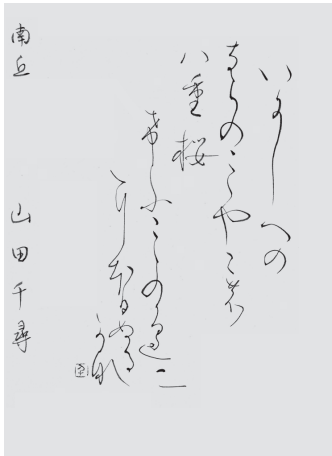 いにしへの
ならのみやこの
八重桜
希ふこゝの遍二
にほ日ぬる
うな
南丘 山田千尋